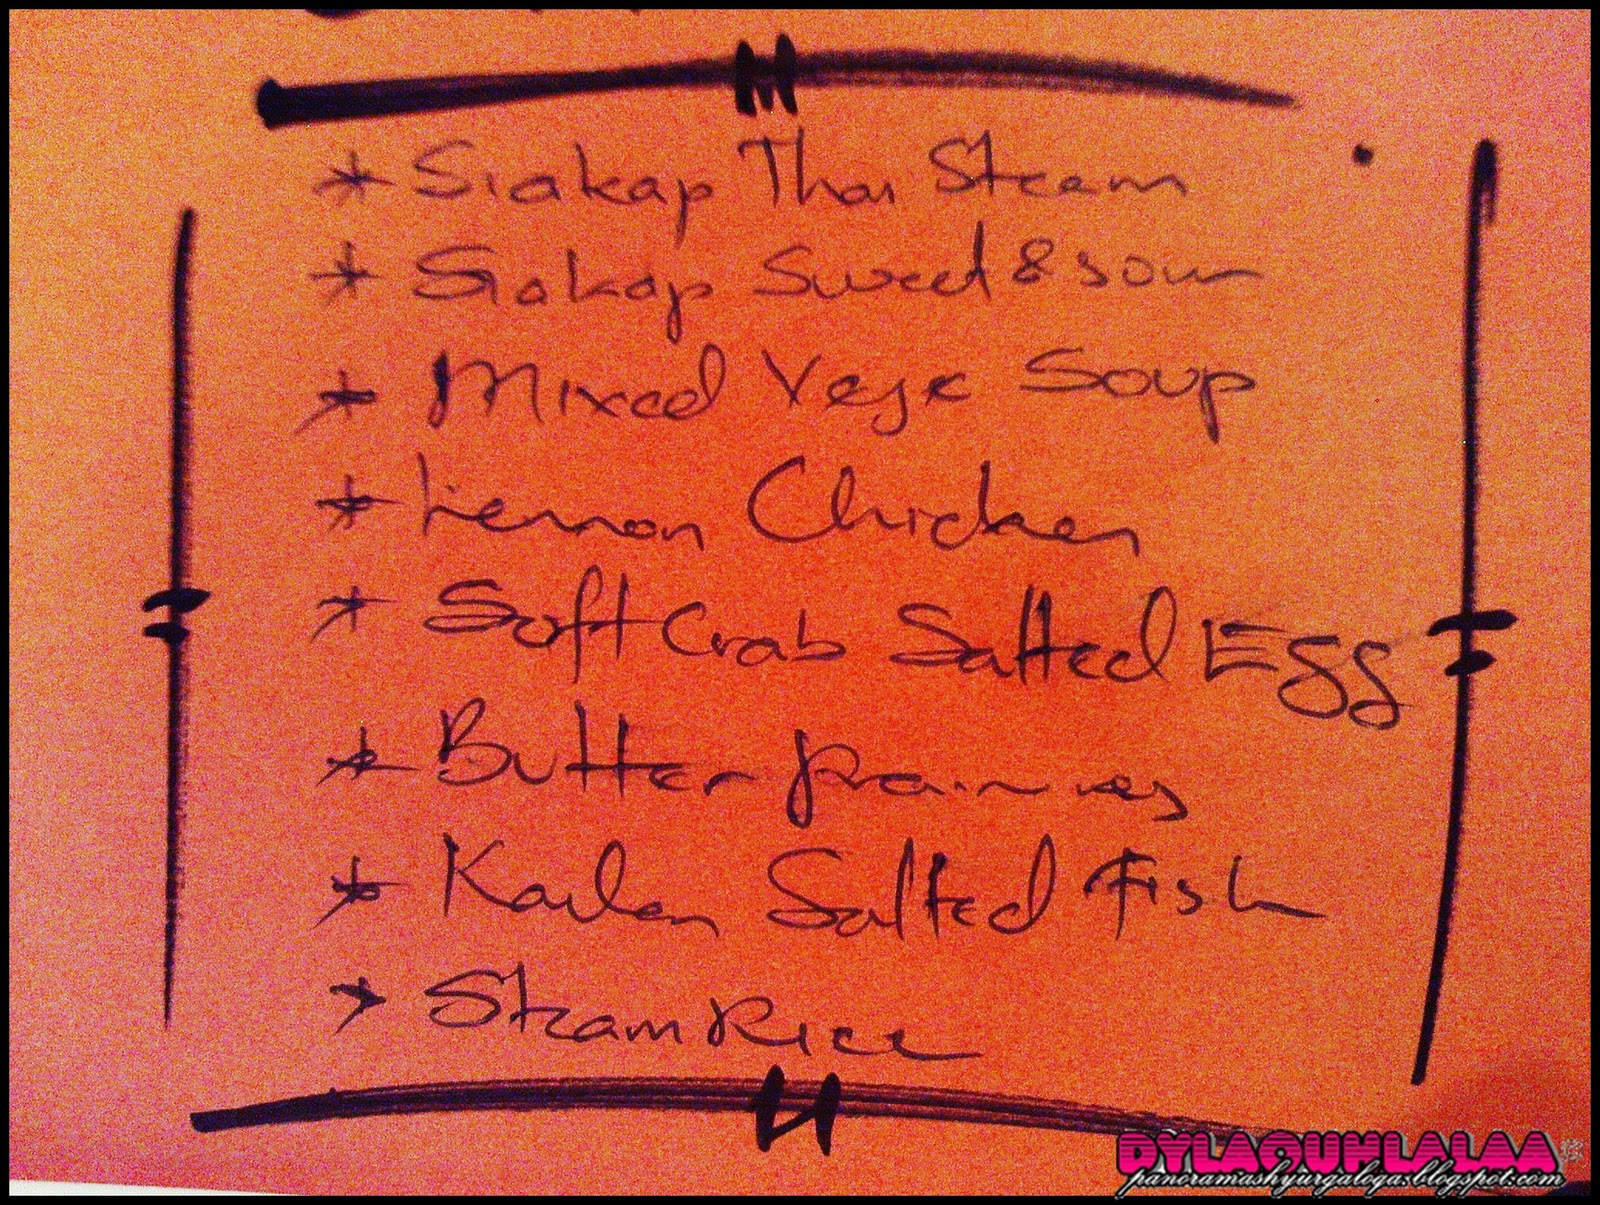 * Siakap Thai Steam
* Siakap Sweet & sour
* Mixed Vege Soup
* Lemon Chicken
* Soft Crab Salted Egg
* Butter prawn
* Kailan Salted Fish
* Steam Rice
DYLAQUHLALAA
panoramashyurgaloga.blogspot.com